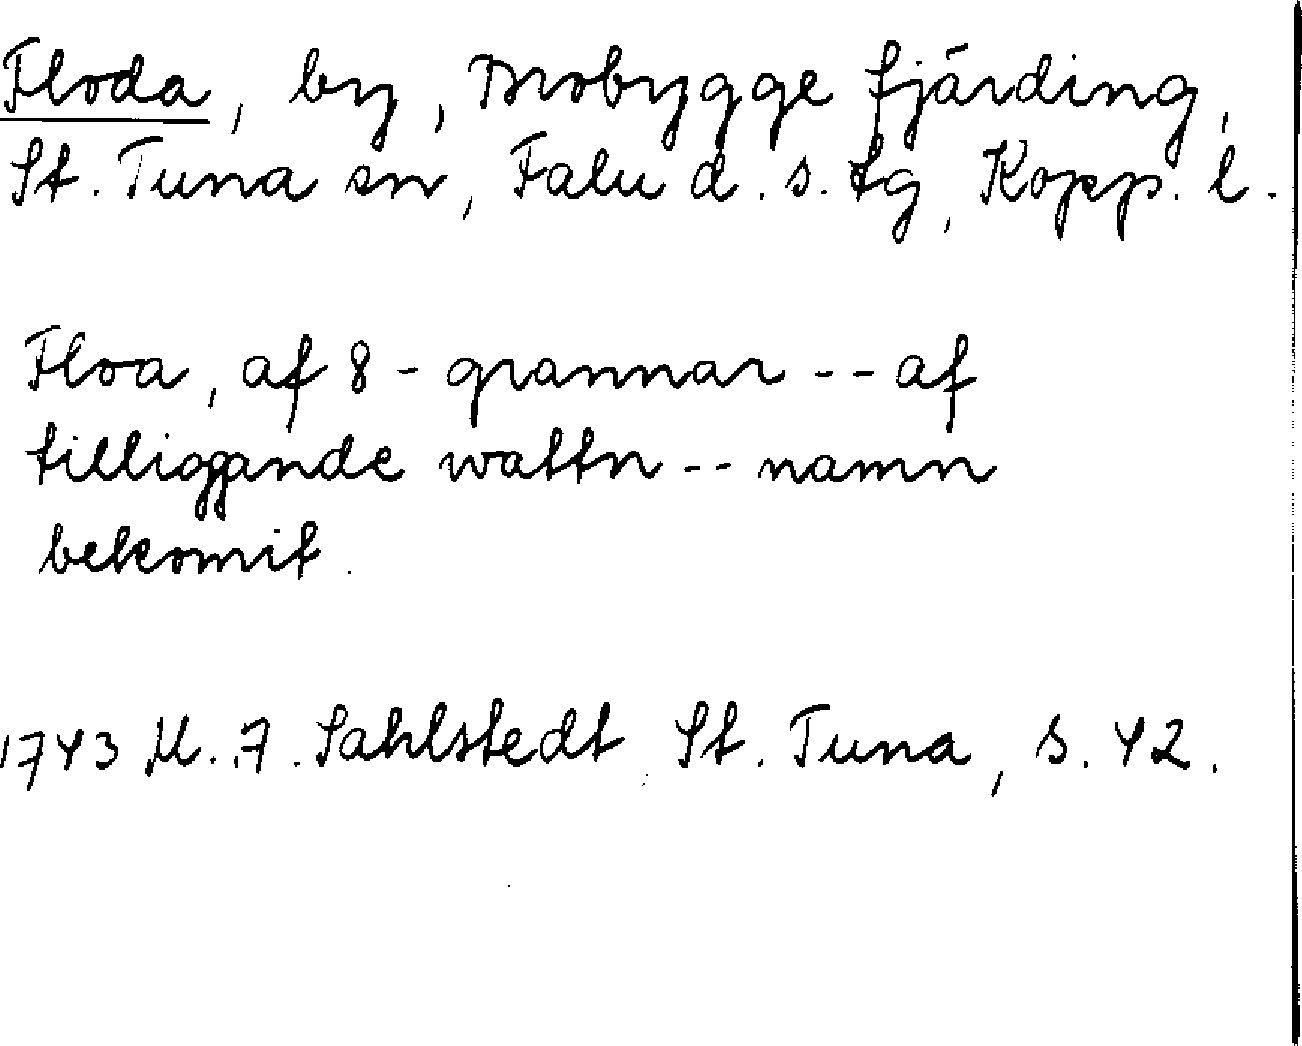 Floda, by, Brobygge fjärding,
St. Tuna sn, Falu d. s. tg, Kopp. l.
Floa, af 8 - grannar -- af
tilliggande wattn -- namn
bekomit.
1743 M. A. Sahlstedt, St. Tuna, s. 42.